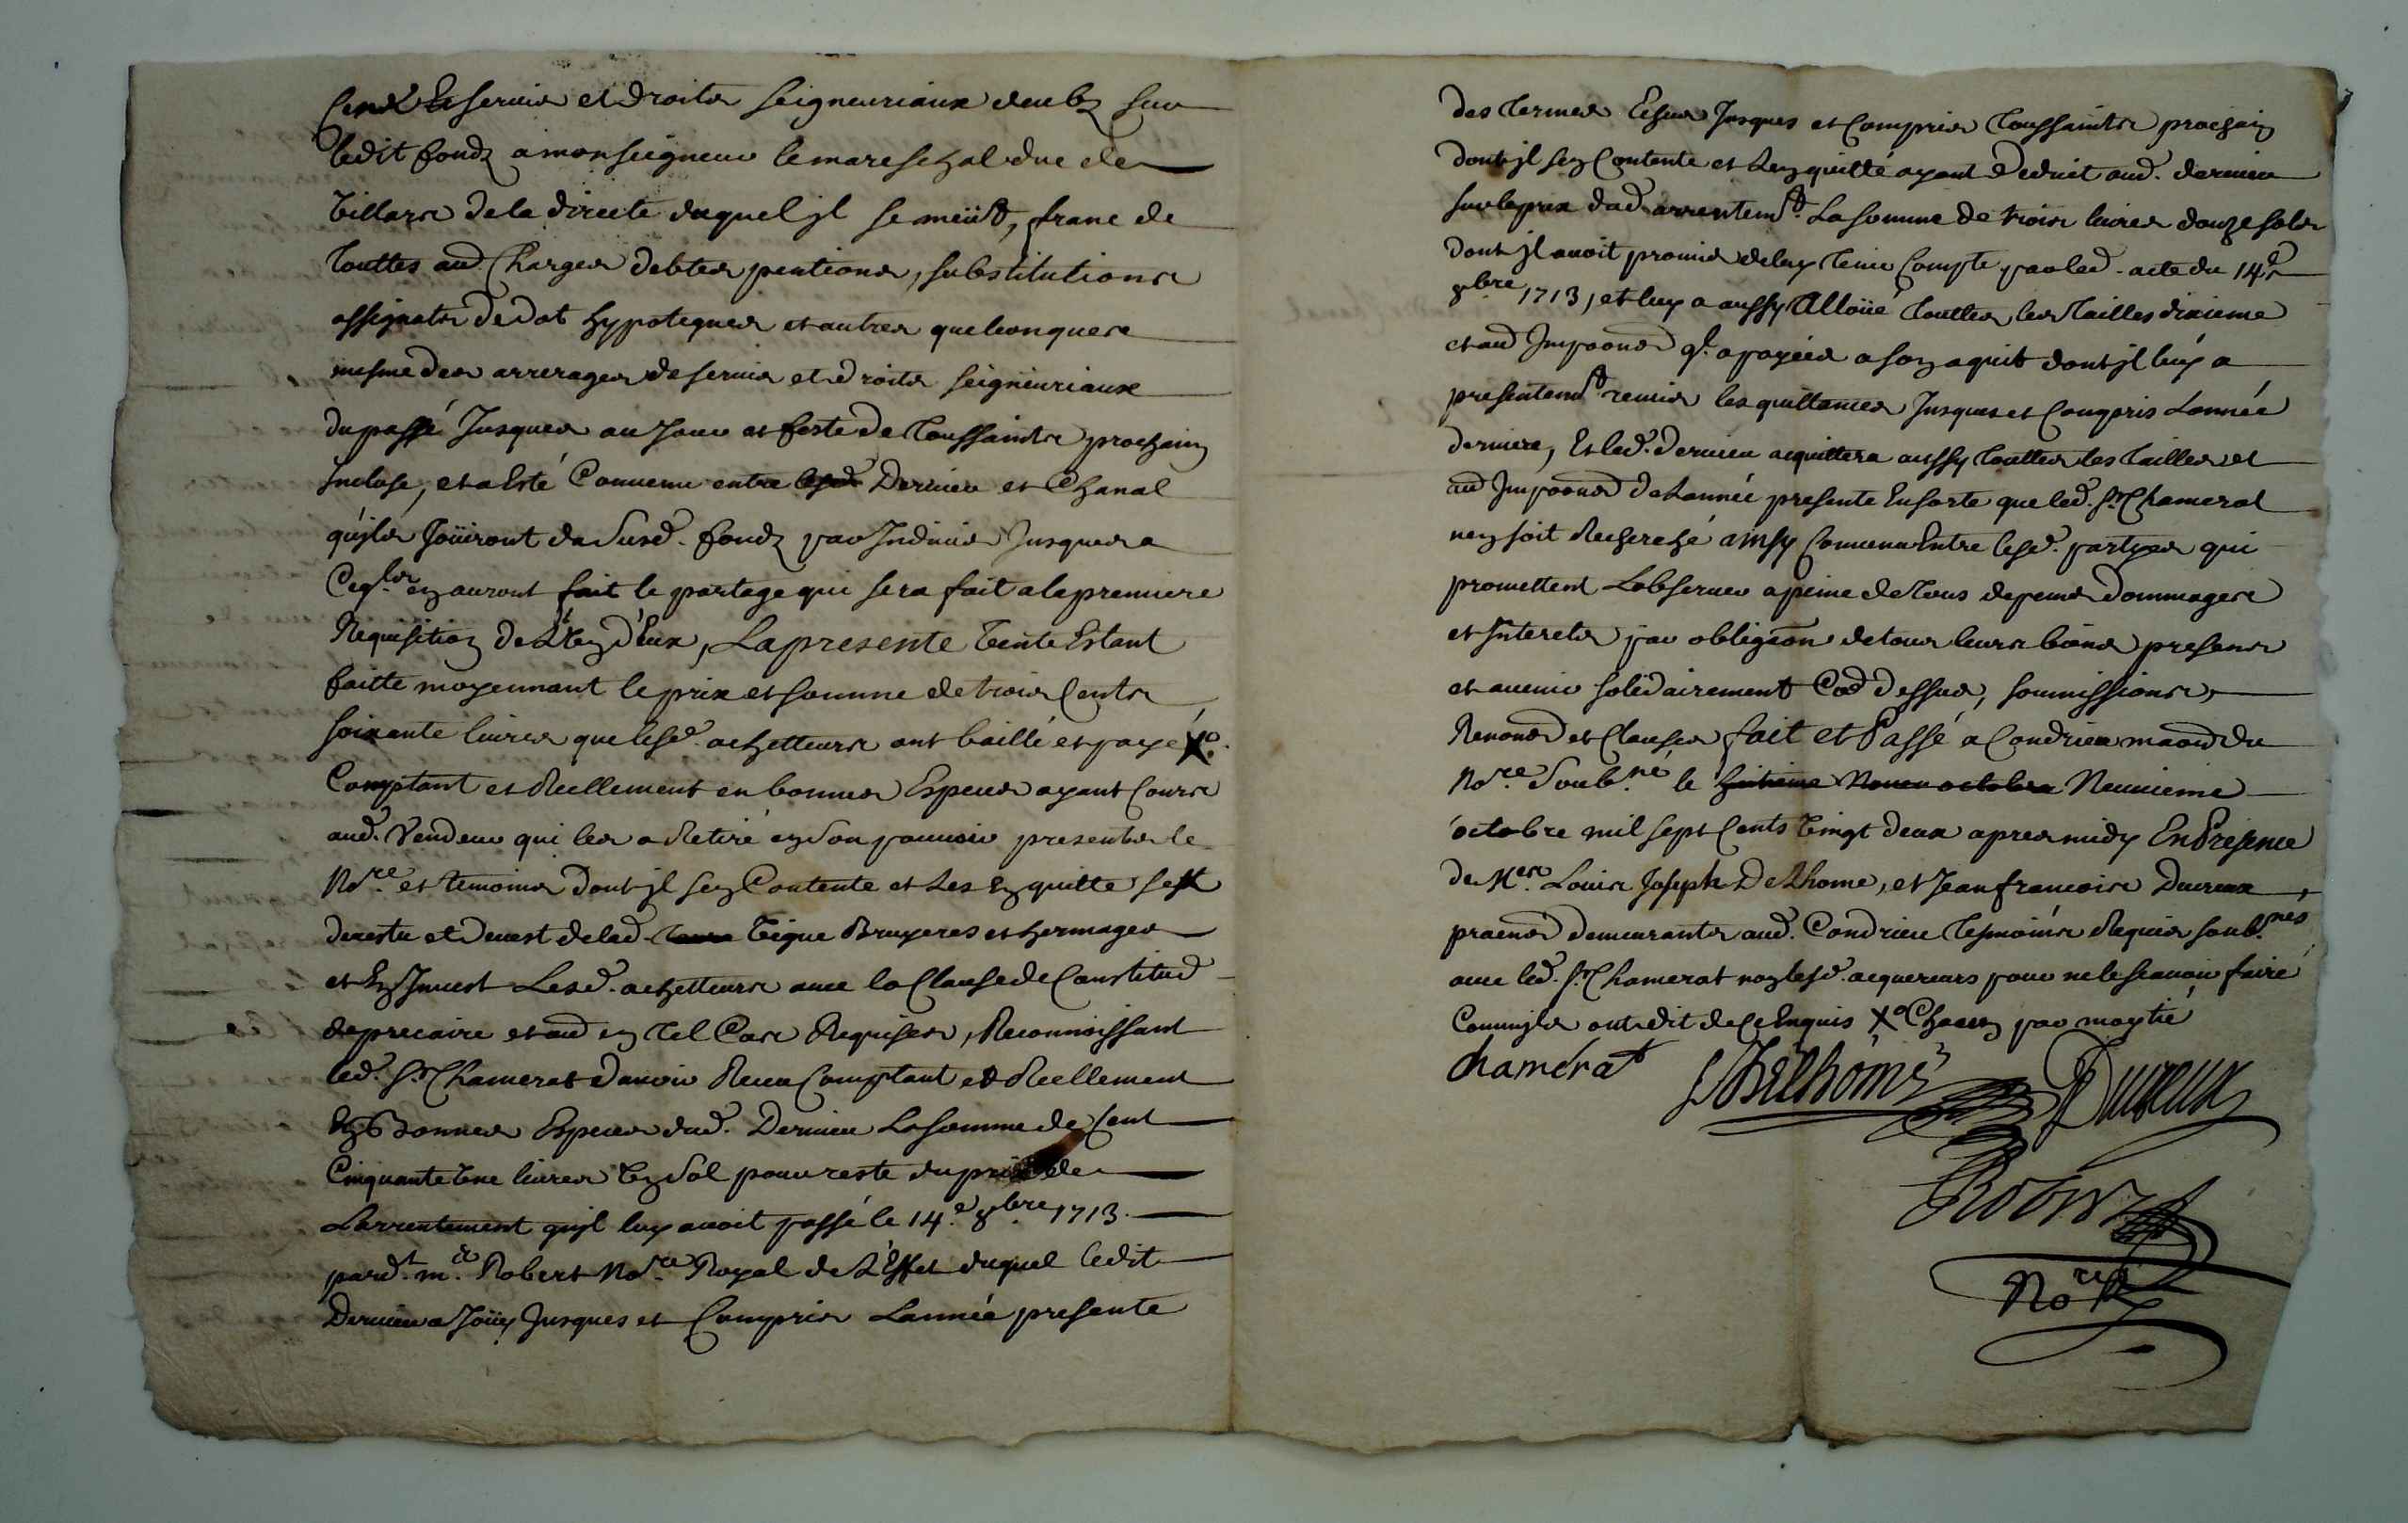 Cens et servis et droits seigneuriaux deubz sur
ledit fondz a monseigneur le mareschal duc de
Villars de la directe duquel jl se meüst, franc de
touttes aud. Charges debtes pentions, substitutions
assignats de dot hypoteques et autres quelconques
mesme des arrerages de servis et droits seigneuriaux
du passé Jusques au Jour et feste de Toussaints prochain
Incluse, et a Esté Convenu entre lesd. Dervieu et Chanal
qu'jls Joüiront du Susd. fondz par Indivis Jusques a
Ceq.ls en auront fait le partage qui sera fait a la premiere
Requisition de L'un d'Eux, La presente Vente Estant
faitte moyennant le prix et somme de trois Cents
soixante livres que lesd. achetteurs ont baillé et payé X.o
Comptant et Réellement en bonnes Especes ayant Cours
aud. Vendeur qui les a Retiré en Son pouvoir presents le
No.re et temoins Dont jl s'en Contente et Les En quitte s'est
devestu et Devest de lad. Vigne Bruyeres et hermages
et En Jnvest Lesd. achetteurs avec la Clause de Constitud
de precaire et aud en tel Cas Requises, Reconnoissant
led. Sr Chamerat d'avoir Receu Comptant et Réellement
En Bonnes Especes dud. Dervieu La somme de Cent
Cinquante Une livres Un Sol pour reste du prix de
L'arrentement qu'jl luy avoit passé le 14.e 8bre 1713.
pard.t m.e Robert No.re Royal de L'Effet duquel ledit
Dervieu a Joüy Jusques et Compris L'année presente
des termes Echus Jusques et Compris Toussaints prochain
dont jl s'en Contente et L'en quitté ayant Deduit aud. dervieu
sur le prix dud. arrentem.t La somme de trois livres douze sols
dont jl avoit promis de luy tenir Compte par led. acte du 14.e
8bre 1713, et luy a aussy Alloüé touttes les tailles dixieme
et aud Impoons q.l a payées a son aquit dont jl luy a
presentem.t remis les quittances Jusques et Compris L'année
derniere, Et led. Dervieu acquittera aussy touttes les tailles et
aud Impoons de L'année presente En sorte que led. Sr Chamerat
n'en soit Recherché ainsy Convenu Entre lesd. partyes qui
promettent L'observer a peine de tous depens Dommages
et Interets par obligeon de tous leurs biens presens
et avenir solidairement Co.e Dessus, soumissions,
Renons et Clauses fait et Passé a Condrieu maison du
No.re Soub.né le huitieme Novem octobre Neuvieme
octobre mil sept Cents Vingt deux apres midy En Présence
de Me.re Louis Joseph Delhome, et Jean francois Ducreux
praens demeurants aud. Condrieu tesmoins Requis soub.nés
avec led. Sr Chamerat non lesd. acquereurs pour ne le scavoir faire
Comm'jls ont dit de Ce Enquis X.o Chacun par moytié
Chamérat Delhome Ducreux
Robert
No.re R